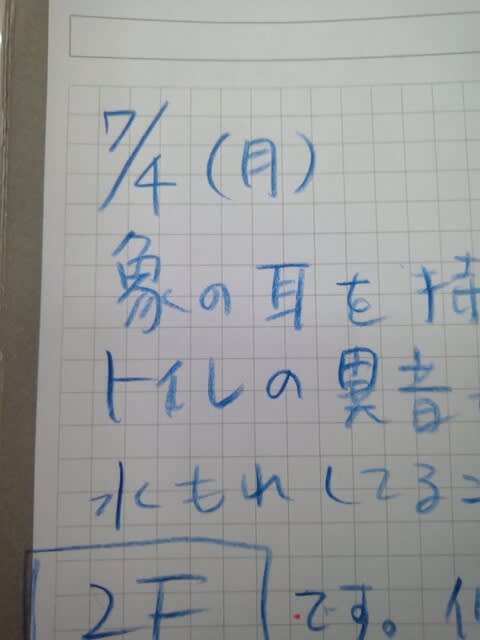 7/4 (月)
象の耳を持
トイレの異音
水もれしてるこ
2F です。